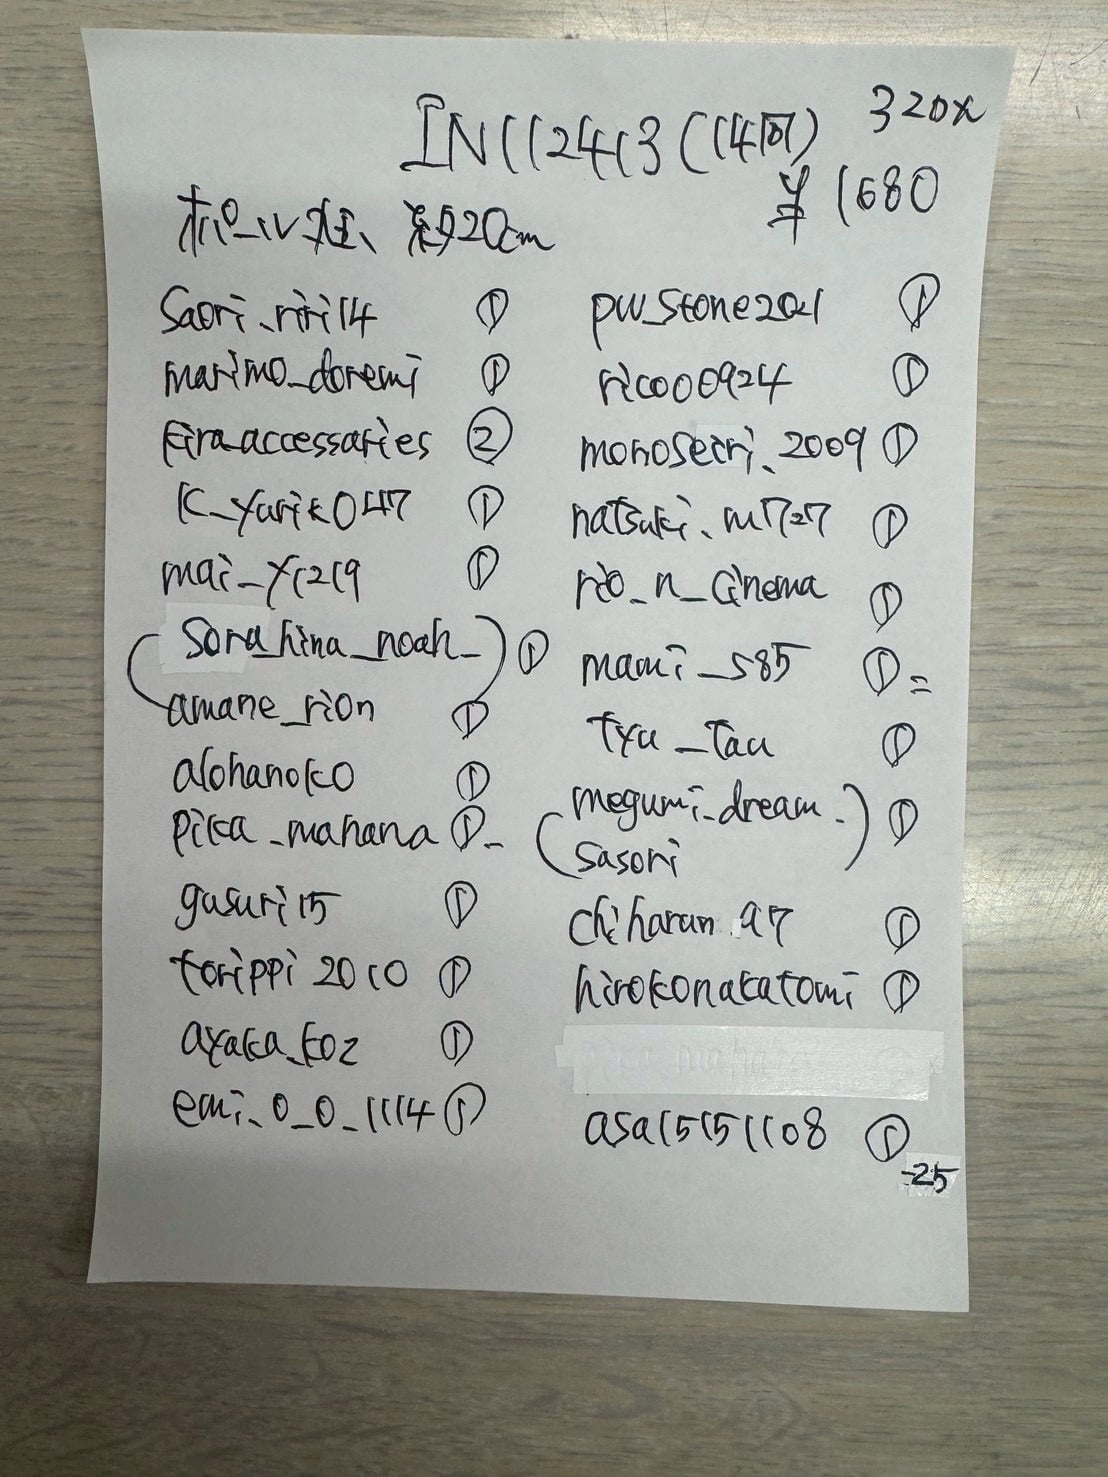 IN112413(14回) 320x
¥1680
ポール狂、約20cm
saori_riri14 ①
marimo_doremi ①
kira_accessaries ②
k_yuriko047 ①
mai_y1219 ①
(sora_hina_noah_) ①
amane_rion ①
alohanoko ①
pika_manana ①-
gusuri15 ①
torippi2010 ①
ayaka_koz ①
emi_0_0_1114 ①
pw_stone2021 ①
rico00924 ①
monoseiri_2009 ①
natsuki.m1727 ①
rio_n_cinema ①
mami_s85 ①=
tyu_tau ①
(megumi_dream_) ①
sasori
chiharun.97 ①
hirokonakatomi ①
asa15151108 ①
-25